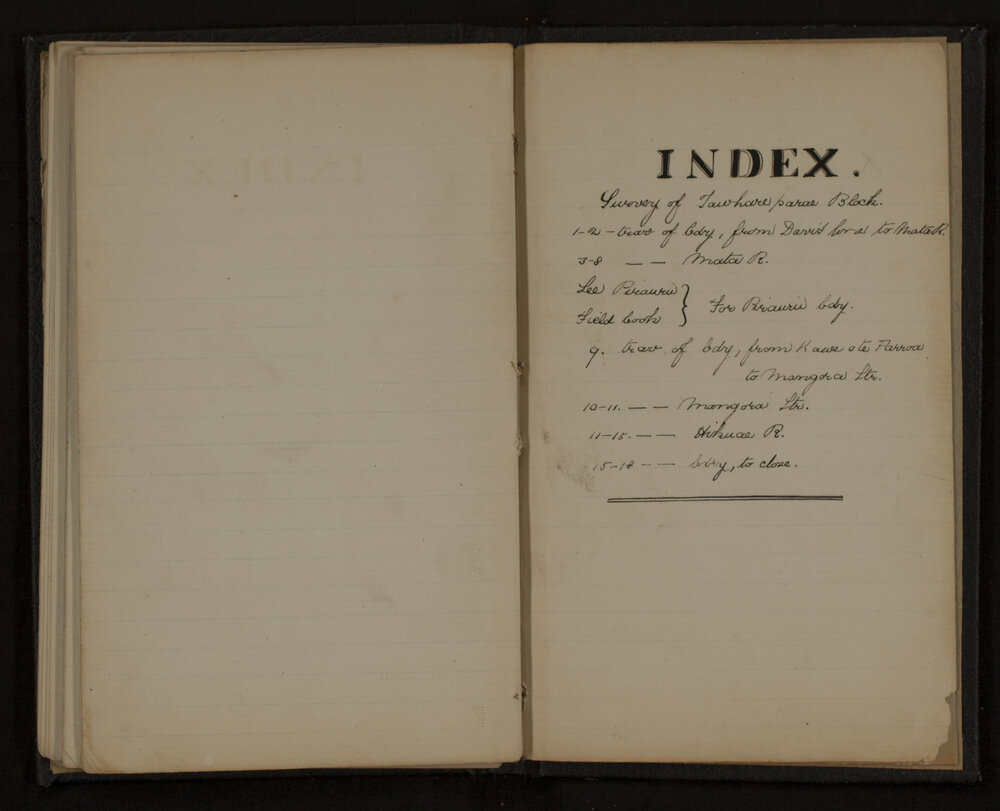 INDEX.
Survey of Tawhareparae Block.
1-2 - trav of bdy, from Davis' line to Mata R.
3-8 — — Mata R.
See Piraurii }
Field book } For Piraurii bdy.
9. trav of bdy, from Kawe ote Parroa
to Mangora Str.
10-11. — — Mangora Str.
11-15. — — Hikuae R.
15-18 - - bdry, to close.